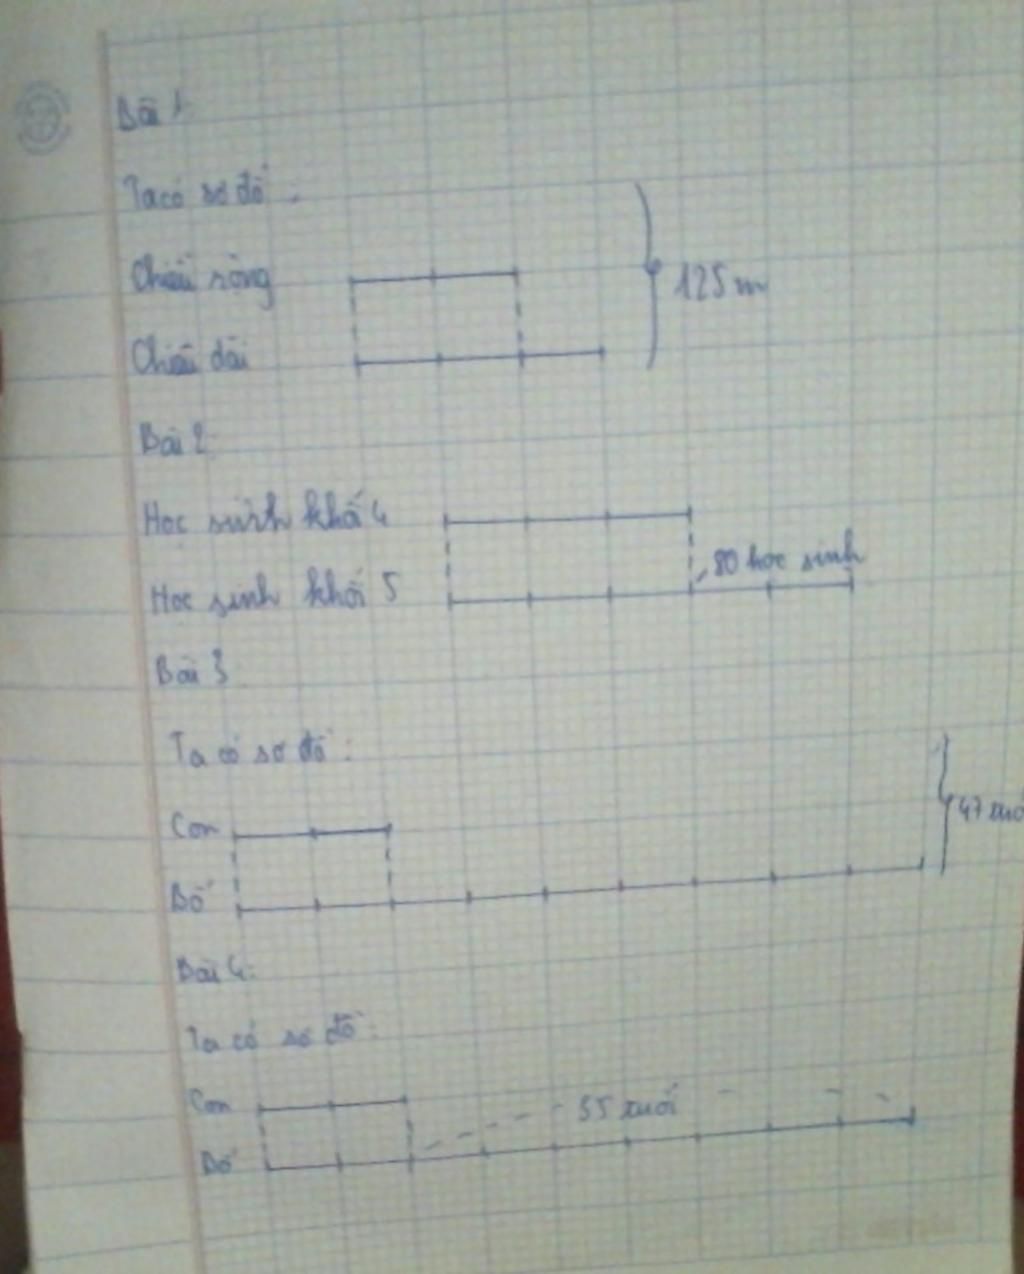 Bài 1
Ta có sơ đồ:
Chiều rộng
125 m
Chiều dài
Bài 2:
Học sinh khối 4
80 học sinh
Học sinh khối 5
Bài 3
Ta có sơ đồ:
Con
47 tuổ
Bố
Bài 4:
Ta có sơ đồ:
Con
35 tuổi
Bố